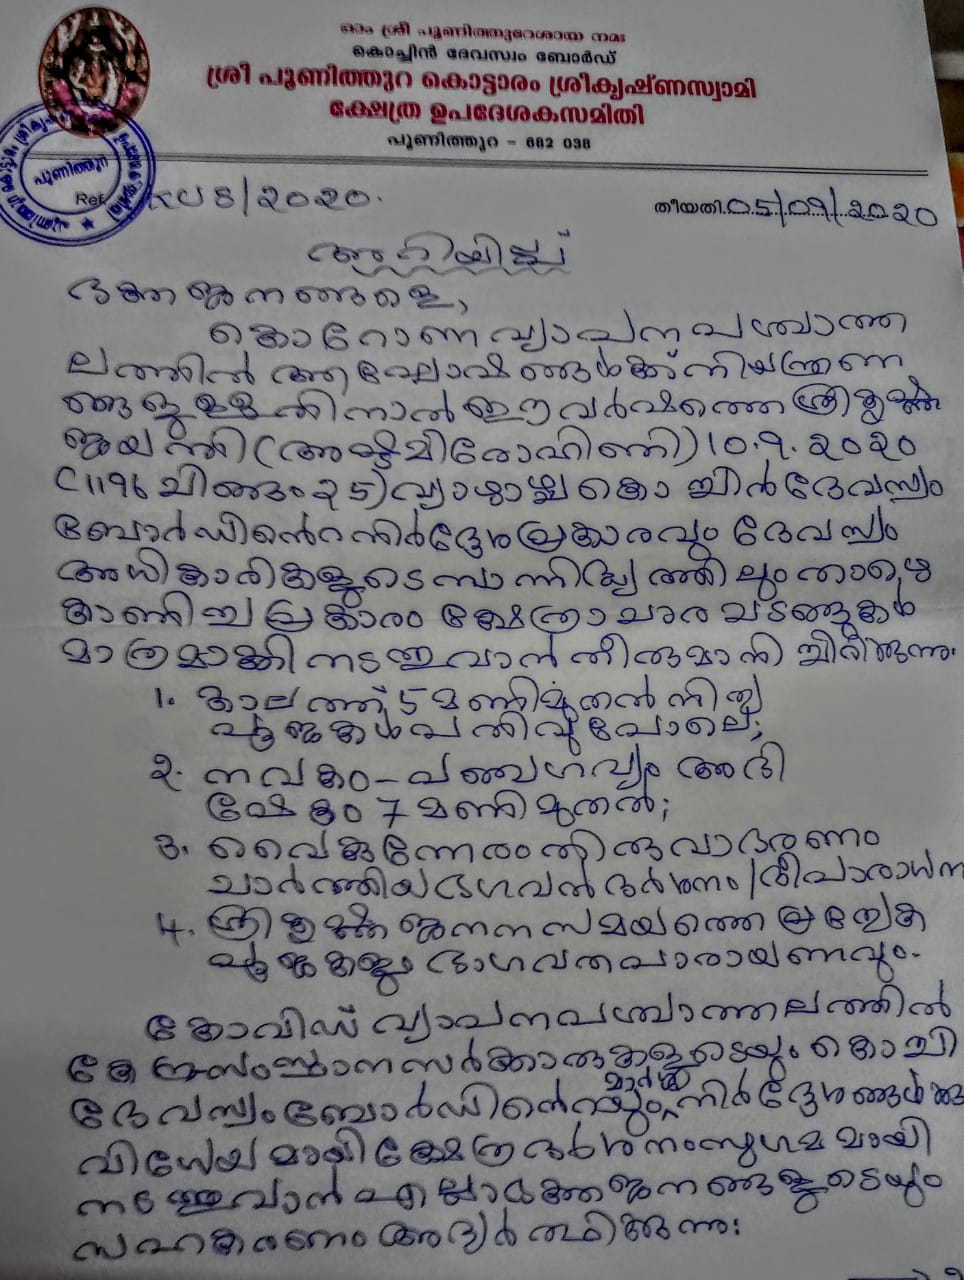 ഓം ശ്രീ പൂണിത്തുറേശായ നമഃ
കൊച്ചിൻ ദേവസ്വം ബോർഡ്
ശ്രീ പൂണിത്തുറ കൊട്ടാരം ശ്രീകൃഷ്ണസ്വാമി
ക്ഷേത്ര ഉപദേശകസമിതി
പൂണിത്തുറ - 682 038
പൂണിത്തുറ
Ref 8/2020.
തീയതി.05/09/2020
അറിയിപ്പ്
ഭക്തജനങ്ങളെ,
കൊറോണ വ്യാപന പശ്ചാത്ത
ലത്തിൽ ആഘോഷങ്ങൾക്ക് നിയന്ത്രണ
ങ്ങളുള്ളതിനാൽ ഈ വർഷത്തെ ശ്രീകൃഷ്ണ
ജയന്തി (അഷ്ടമിരോഹിണി) 10.9.2020
(1196 ചിങ്ങം 25) വ്യാഴാഴ്ച കൊച്ചിൻ ദേവസ്വം
ബോർഡിൻെറ നിർദ്ദേശപ്രകാരവും ദേവസ്വം
അധികാരികളുടെ സാന്നിദ്ധ്യത്തിലും താഴെ
കാണിച്ച പ്രകാരം ക്ഷേത്രാചാര ചടങ്ങുകൾ
മാത്രമാക്കി നടത്തുവാൻ തീരുമാനിച്ചിരിക്കുന്നു.
1. കാലത്ത് 5 മണിമുതൽ നിത്യ
പൂജകൾ പതിവുപോലെ;
2. നവകം - പഞ്ചഗവ്യം അഭി
ഷേകം 7 മണി മുതൽ;
3. വൈകുന്നേരം തിരുവാഭരണം
ചാർത്തിയ ഭഗവൽ ദർശനം / ദീപാരാധന
4. ശ്രീകൃഷ്ണ ജനന സമയത്തെ പ്രത്യേക
പൂജകളും ഭാഗവതപാരായണവും.
കോവിഡ് വ്യാപന പശ്ചാത്തലത്തിൽ
കേന്ദ്രസംസ്ഥാന സർക്കാരുകളുടെയും കൊച്ചി
മാർഗ്ഗ
ദേവസ്വം ബോർഡിൻെറയും നിർദ്ദേശങ്ങൾക്കു
വിധേയമായി ക്ഷേത്രദർശനം സുഗമമായി
നടത്തുവാൻ എല്ലാ ഭക്തജനങ്ങളുടെയും
സഹകരണം അഭ്യർത്ഥിക്കുന്നു.